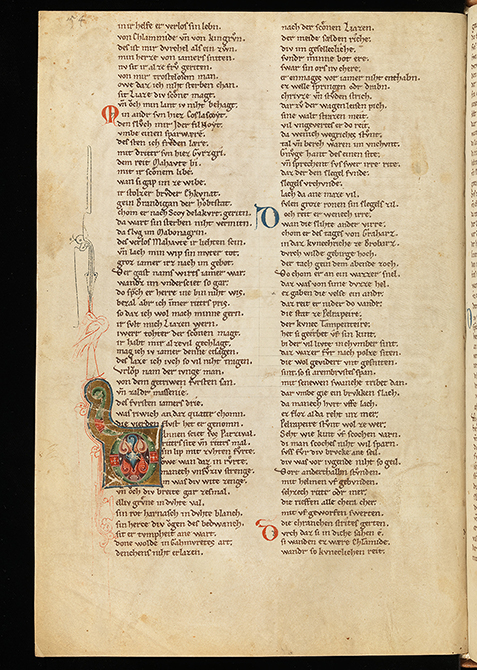 mir helfe er verlos sin lebn.
von Chlammide vñ von kingrvn.
des ist mir dvrchel als ein zvn.
min herze von iamers sitten.
nv sit ir alze frv geriten.
von mir trostelosen man.
owe daz ich niht sterben chan.
sit Liaze div schone magt.
vñ och min lant iv niht behagt.
Min ander svn hiez
den slvch mir Ider fil Noyt.
vmbe einen sparwære.
des sten ich frevden lære.
min dritter svn hiez Gvrzgri.
dem reit Mahavte bi.
mit ir schonem libe.
wan si gap im ze wibe.
ir stolzer brvder Ehkvnat.
gein Brandigan der hovbetstat.
chom er nach Scoy delakvrt geriten.
da wart sin sterben niht vermiten.
da slvg im Mabonagrin.
des verlos Mahavte ir liehten sein.
vñ lach min wip sin mvter tot.
groz iamer irz nach im gebot.
Der gast nams wirtes iamer war.
wandz im vnderschiet so gar.
do sprach er herre ine bin niht wis.
bezal abr ich imer riters pris.
so daz ich wol mach minne gern.
ir svlt mich Liazen wern.
iwerr tohter der schonen magt.
ir habt mir al zevil gechlagt.
mag ich iv iamer denne
des laze ich iveh so vil niht tragen.
Vrlop nam der ivnge man.
von dem getriwen fvrsten san.
vñ zaldr massenie.
des fvrsten iamers drie.
was riwich an daz qvatter chomn.
die vierden flvst het er genomn.
hinnen sciet nv Parcival.
ritters site vñ ritters mal.
sin lip mit zvhten fvrte.
owe wan daz in rvrte.
manech vnsvziv strenge.
im was div wite zenge.
vñ och div breite gar zesmal.
elliv grvne in dvhte val.
sin rot harnasch in dvhte blanch.
sin herce div ogen des bedwanch.
sit er tvmpheit ane wart.
done wolde in Gahmvretes art.
denchens niht erlazen.
nach der schonen Liazen.
der meide sælden riche.
div im geselleclîche.
svnder minne bot ere.
swar sin ors nv chere.
er enmages vor iamer niht enthabn.
ez welle springen oder drabn.
chrvze vñ stvden strich.
dar zv der wagenleisen pich.
sine walt straze meit.
vil vngevertes er do reit.
da wenich wegriches stvnt.
tal vñ berch waren im vnchvnt.
gnvge hant des einen site.
vñ sprechent svs swer irre rite.
daz der den slegel fvnde.
slegels vrchvnde.
lach da ane maze vil.
svlen groze ronen sin slegels zil.
Doch reit er wenech irre.
wan die slihte ander virre.
chom er des tages von Graharz.
in daz kvnechriche ze Brobarz.
dvrch wilde gebirge hoch.
der tach gein dem abende zoch.
Do chom er an ein wazzer snel.
daz was von sime dvzze hel.
ez gaben die velse ein andr.
daz reit er nider do vandr.
die stat ze Pelrapeire.
der kvnec Tampenteire.
het si geerbet vf sin kint.
bi der vil livte in chvmber sint.
daz wazer fvr nach polze siten.
die wol gevidert vnt gesniten.
sint. so si arembrvstes span.
mit senewen swanche tribet dan.
dar vmbe gie ein brvkken slach.
da manech hvrt vffe lach.
ez floz alda reht inz mer.
Pelrapeire stvnt wol ze wer.
Seht wie kint vf schochen varn.
di man schochel niht wil sparn.
svs fvr div brvcke ane seil.
div was vor ivgende niht so geil.
Dort anderthalbn stvnden.
mit helmen vf gebvnden.
sehzech ritter oder mer.
die riefen alle chera cher.
mit vf geworfen swerten.
die chranchen strites gerten.
Dvrch daz si in diche sahen e.
si wanden ez wære Chlamide.
wandr so kvneclichen reit.